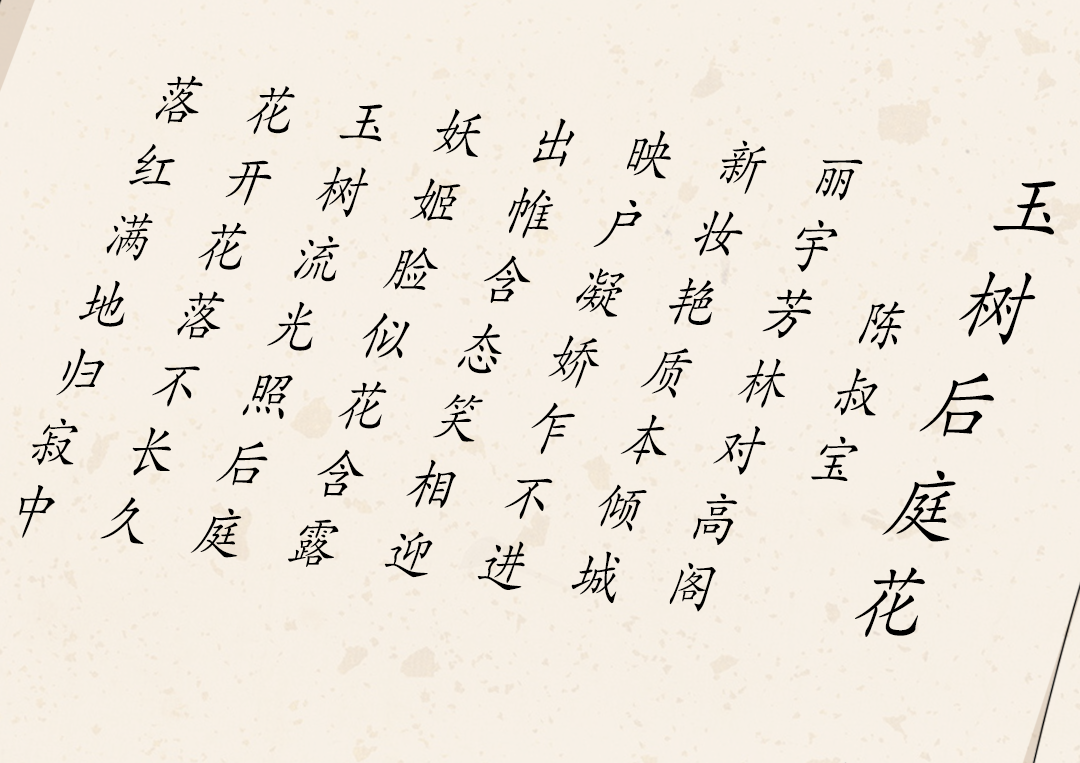 玉树后庭花
陈叔宝
丽宇芳林对高阁
新妆艳质本倾城
映户凝娇乍不进
出帷含态笑相迎
妖姬脸似花含露
玉树流光照后庭
花开花落不长久
落红满地归寂中